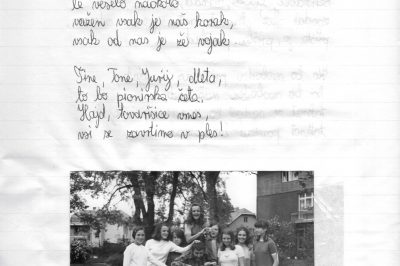 le veselo naokoli
važen vsak je naš korak,
vsak od nas je že vojak.
Tine, Tone, Jurij, Meta,
to bo pionirska četa,
Hajd, tovarišice vmes,
vsi se zavrtimo v ples!